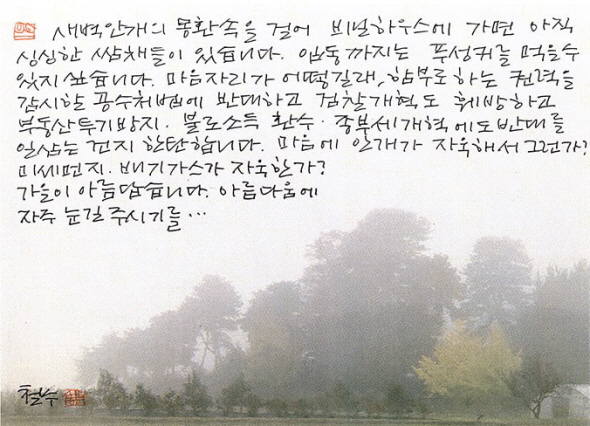 새벽안개의 몽환속을 걸어 비닐하우스에 가면 아직
싱싱한 쌈채들이 있습니다. 입동까지는 푸성귀를 먹을수
있지 싶습니다. 마음자리가 어떻길래, 함부로하는 권력을
감시할 공수처법에 반대하고 검찰개혁도 훼방하고
부동산투기방지·불로소득 환수·종부세개혁에도 반대를
일삼는 건지 한탄합니다. 마음에 안개가 자욱해서 그런가?
미세먼지·배기가스가 자욱한가?
가을이 아름답습니다. 아름다움에
자주 눈길 주시기를…
철수